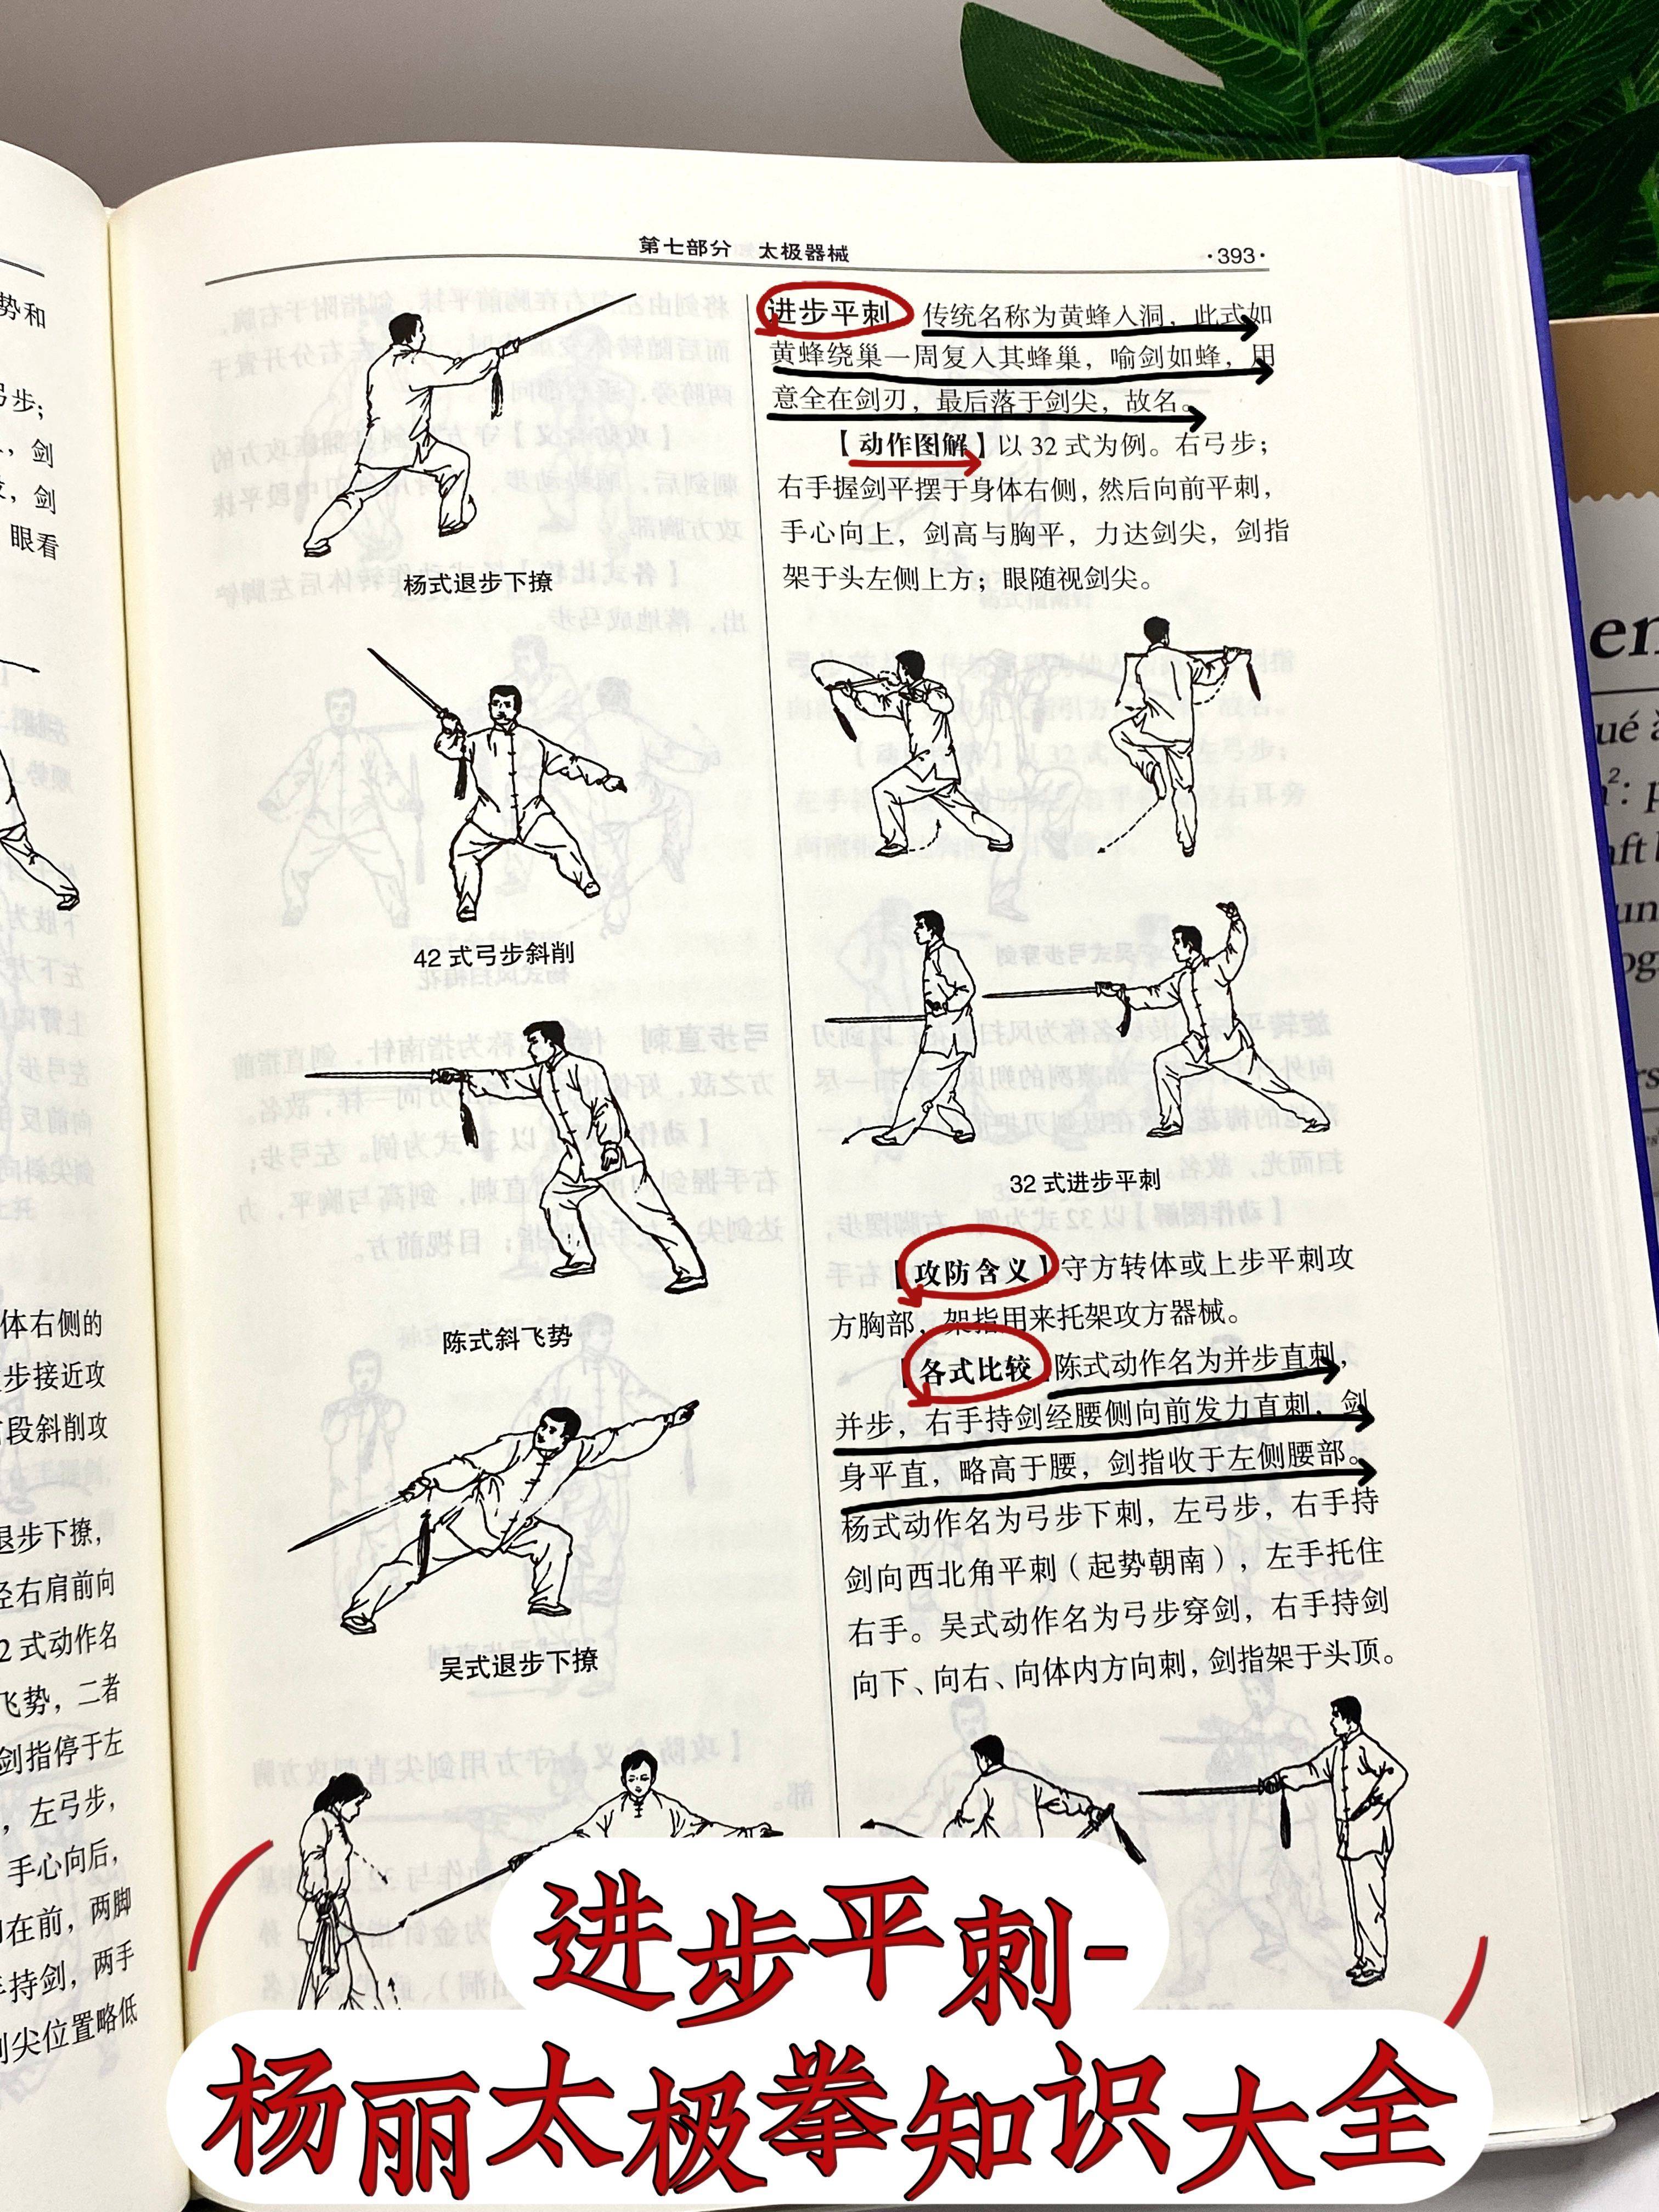 第七部分 太极器械
·393·
势和
弓步;
,剑
,剑
眼看
体右侧的
步接近攻
段斜削攻
退步下撩,
经右肩前向
2 式动作名
飞势,二者
剑指停于左
,左弓步,
手心向后,
在前,两脚
持剑,两手
尖位置略低
杨式退步下撩
42 式弓步斜削
陈式斜飞势
吴式退步下撩
进步平刺 传统名称为黄蜂入洞,此式如
黄蜂绕巢一周复入其蜂巢,喻剑如蜂,用
意全在剑刃,最后落于剑尖,故名。
【动作图解】以 32 式为例。右弓步;
右手握剑平摆于身体右侧,然后向前平刺,
手心向上,剑高与胸平,力达剑尖,剑指
架于头左侧上方;眼随视剑尖。
32 式进步平刺
【攻防含义】守方转体或上步平刺攻
方胸部,架指用来托架攻方器械。
【各式比较】陈式动作名为并步直刺,
并步,右手持剑经腰侧向前发力直刺,剑
身平直,略高于腰,剑指收于左侧腰部。
杨式动作名为弓步下刺,左弓步,右手持
剑向西北角平刺(起势朝南),左手托住
右手。吴式动作名为弓步穿剑,右手持剑
向下、向右、向体内方向刺,剑指架于头顶。
进步平刺-
杨丽太极拳知识大全